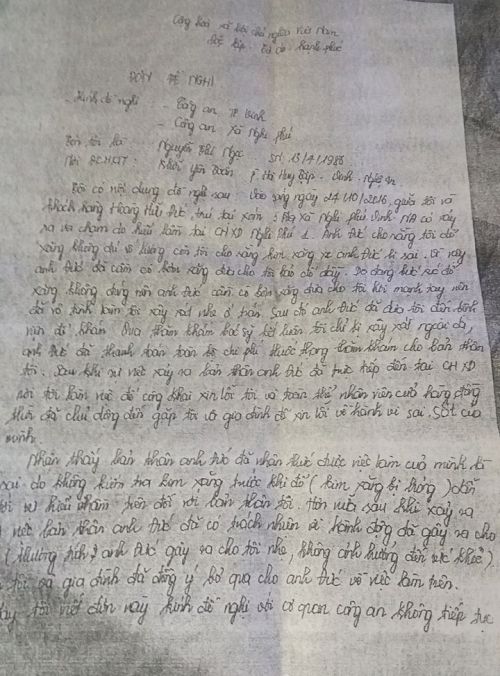 Cộng hoà xã hội chủ nghĩa Việt Nam
Độc lập - Tự do - hạnh phúc
ĐƠN ĐỀ NGHỊ
Kính đề nghị - Công an TP Vinh
- Công an xã Nghi phú
Tên tôi là Nguyễn Thị Ngọc Sn: 13/4/1988
Nơi ĐCHKTT: Khối Yên Toàn P Hà Huy Tập - Vinh - Nghệ An
Tôi có nội dung đề nghị sau: Vào sáng ngày 24/10/2016, giữa tôi và
khách hàng Hoàng Hữu Đức, trú tại xóm xã Nghi phú Vinh NA có xảy
ra va chạm do hiểu lầm tại CHXD Nghi Phú 1. Anh Đức cho rằng tôi đổ
xăng không đủ số lượng còn tôi cho rằng kim xăng xe anh Đức bị sai. Vì vậy
anh Đức đã cầm cò bơm xăng đưa cho tôi bảo đổ đầy. Do đang lúc đổ
xăng không đúng nên anh Đức cầm cò bơm xăng đưa cho tôi hơi mạnh tay nên
đã vô tình làm tôi xây xát nhẹ ở trán. Sau đó anh Đức đã đưa tôi đến bệnh
viện để khám. Qua thăm khám bác sỹ kết luận tôi chỉ bị xây xát ngoài da,
anh Đức đã thanh toán toàn bộ chi phí thuốc thang thăm khám cho bản thân
tôi. Sau khi sự việc xảy ra bản thân anh Đức đã trực tiếp đến tại CHXD
nơi tôi làm việc để công khai xin lỗi tôi và toàn thể nhân viên cửa hàng đồng
thời đã chủ động đến gặp tôi và gia đình để xin lỗi về hành vi sai sót của
mình.
Nhận thấy bản thân anh Đức đã nhận thức được việc làm của mình là
sai do không kiểm tra kim xăng trước khi đổ (kim xăng bị hỏng) dẫn
tới sự hiểu nhầm trên đối với bản thân tôi. Hơn nữa sau khi xảy ra
việc bản thân anh Đức đã có trách nhiệm về hành động đã gây ra cho
(thương tích anh Đức gây ra cho tôi nhẹ, không ảnh hưởng đến sức khoẻ).
tôi và gia đình đã đồng ý bỏ qua cho anh Đức về việc làm trên.
tôi viết đơn này kính đề nghị với cơ quan công an không tiếp tục